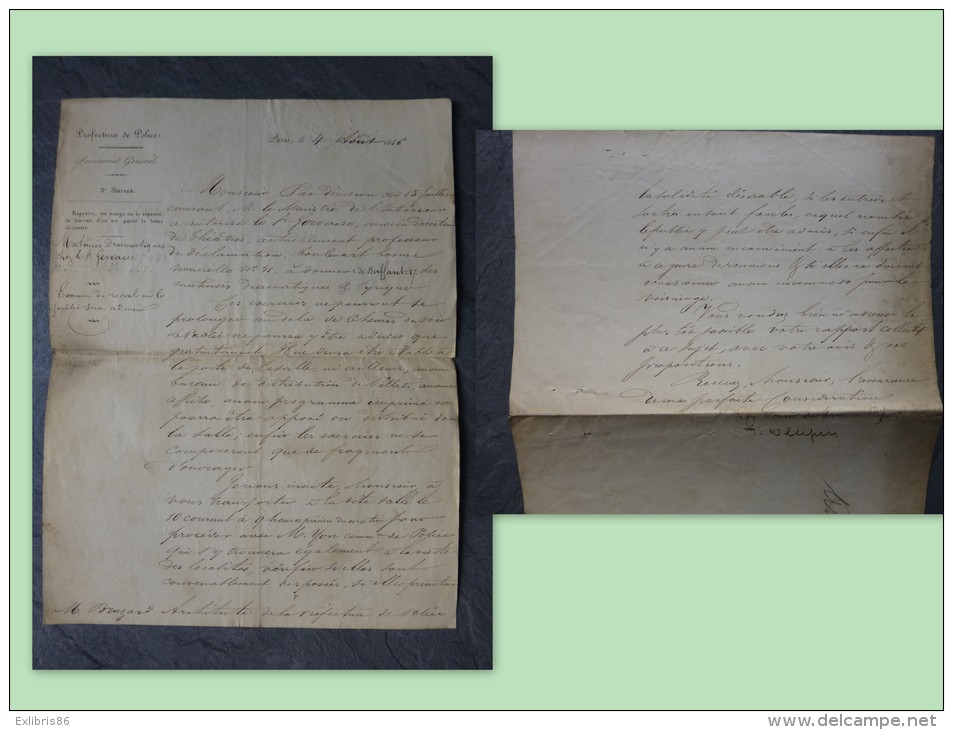 Préfecture de Police.
Paris, le 4 Août 1846
Secrétariat Général.
2e Bureau.
Rappeler, en marge de la réponse,
le bureau d'où est partie la lettre
Matinées Dramatiques
chez le Sr Gervaise
Examen du local où le
public sera admis
Monsieur, Par décision du 15 Juillet
courant, M. le Ministre de l'Intérieur
a autorisé le Sr Gervaise, ancien directeur
de théâtres, actuellement professeur
de déclamation, boulevart bonne
nouvelle No 31, à donner r. de Buffaut 17. des
matinées dramatiques & lyriques
Ces exercices ne pourront se
prolonger au delà de 6 heures du soir
le public ne pourra y être admis que
gratuitement. Il ne devra être établi à
la porte de la salle, ni ailleurs, aucun
bureau de distribution de billets, aucune
affiche, aucun programme imprimé ne
pourra être apposé ou distribué dans
la salle; enfin les exercices ne se
composeront que de fragments
d'ouvrages
Je vous invite, Monsieur, à
vous transporter à la dite salle le
10 courant à 9 heures précises du matin pour
procéder avec M. Yon commre de Police
qui s'y trouvera également à la visite
des localités, vérifier si elles sont
convenablement disposées, si elles présentent
M. Architecte de la Préfecture de Police
la solidité désirable, si les entrées et
sorties en sont faciles, auquel nombre
le public y peut être admis, si enfin il
n'y a aucun inconvénient à les affecter
à ce genre de réunions & si elles ne doivent
occasionner aucun incommode pour le
voisinage.
Vous voudrez bien m'adresser le
plus tôt possible votre rapport collectif
à ce sujet, avec votre avis & vos
propositions.
Recevez, Monsieur, l'assurance
de ma parfaite Considération
Exlibris86
www.delcampe.net